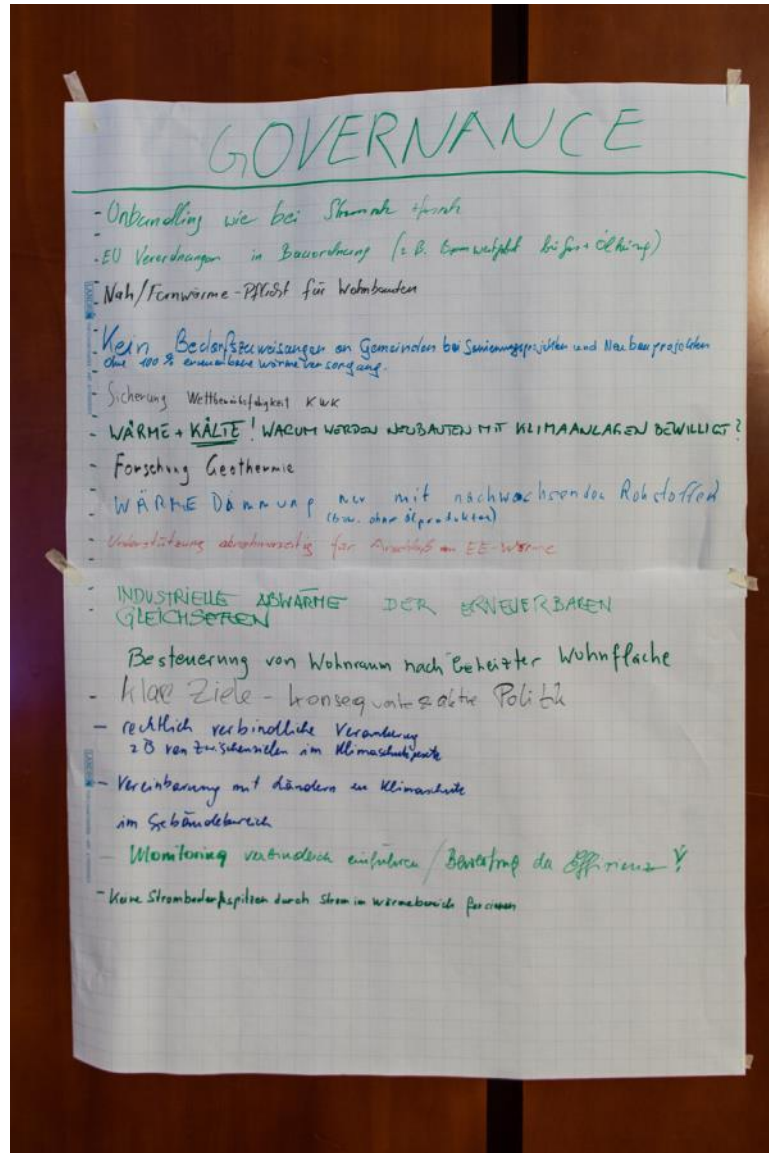 GOVERNANCE
- Unbundling wie bei
- EU Verordnungen in Bauordnung (z.B. bei Gas + Ölheizung)
- Nah/Fernwärme-Pflicht für Wohnbauten
- Kein Bedarfszuweisungen an Gemeinden bei Sanierungsprojekten und Neubauprojekten
ohne 100% erneuerbare Wärmeversorgung.
- Sicherung Wettbewerbsfähigkeit KWK
- WÄRME + KÄLTE! WARUM WERDEN NEUBAUTEN MIT KLIMAANLAGEN BEWILLIGT?
- Forschung Geothermie
- WÄRME Dämmung nur mit nachwachsenden Rohstoffen
(bzw. ohne Ölprodukte)
- Unterstützung abnehmerseitig für Anschluß an EE-Wärme
- INDUSTRIELLE ABWÄRME DER ERNEUERBAREN
GLEICHSETZEN
Besteuerung von Wohnraum nach beheizter Wohnfläche
- klare Ziele - konsequente Politik
- rechtlich verbindliche Verankerung
z B von Zwischenzielen im Klimaschutzgesetz
- Vereinbarung mit Ländern Klimaschutz
im Gebäudebereich
- Monitoring verbindlich einführen / Bewertung der Effizienz!
- Keine Strombedarfsspitzen durch Strom im Wärmebereich forcieren